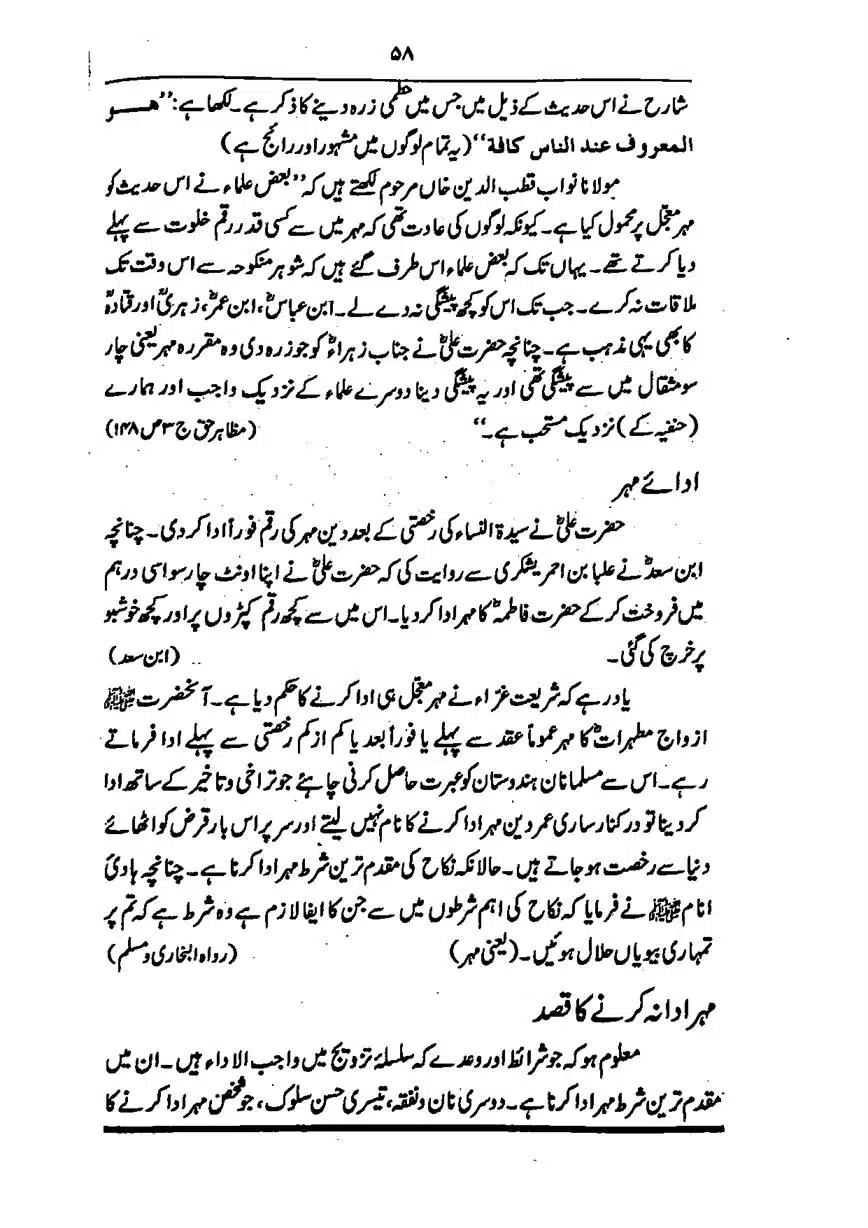 ۵۸
شارح نے اس حدیث کے ذیل میں جس میں حطمی زرہ دینے کا ذکر ہے۔ لکھا ہے: ’’ھـــو
المعروف عند الناس کافة‘‘ (یہ تمام لوگوں میں مشہور اور رائج ہے)
مولانا نواب قطب الدین خاں مرحوم لکھتے ہیں کہ ’’بعض علماء نے اس حدیث کو
مہر معجّل پر محمول کیا ہے۔ کیونکہ لوگوں کی عادت تھی کہ مہر میں سے کسی قدر رقم خلوت سے پہلے
دیا کرتے تھے۔ یہاں تک کہ بعض علماء اس طرف گئے ہیں کہ شوہر منکوحہ سے اس وقت تک
ملاقات نہ کرے۔ جب تک اس کو کچھ پیشگی نہ دے لے۔ ابن عباسؓ، ابن عمرؓ، زہریؒ اور قتادہؒ
کا بھی یہی مذہب ہے۔ چنانچہ حضرت علیؓ نے جناب زہراءؓ کو جو زرہ دی وہ مقررہ مہر یعنی چار
سو مثقال میں سے پیشگی تھی اور یہ پیشگی دینا دوسرے علماء کے نزدیک واجب اور ہمارے
(حنفیہ کے) نزدیک مستحب ہے۔‘‘ (مظاہر حق ج ۳ ص ۱۴۸)
ادائے مہر
حضرت علیؓ نے سیدۃ النساء کی رخصتی کے بعد دین مہر کی رقم فوراً ادا کر دی۔ چنانچہ
ابن سعدؒ نے علبا بن احمر یشکری سے روایت کی کہ حضرت علیؓ نے اپنا اونٹ چار سو اسی درہم
میں فروخت کر کے حضرت فاطمہؓ کا مہر ادا کر دیا۔ اس میں سے کچھ رقم کپڑوں پر اور کچھ خوشبو
پر خرچ کی گئی۔ (ابن سعد)
یاد رہے کہ شریعت غرّاء نے مہر معجّل ہی ادا کرنے کا حکم دیا ہے۔ آنحضرت ﷺ
ازواج مطہراتؓ کا مہر عموماً عقد سے پہلے یا فوراً بعد یا کم از کم رخصتی سے پہلے ادا فرماتے
رہے۔ اس سے مسلمانان ہندوستان کو عبرت حاصل کرنی چاہئے جو تراخی و تاخیر کے ساتھ ادا
کر دینا تو درکنار ساری عمر دین مہر ادا کرنے کا نام نہیں لیتے اور سر پر اس بار قرض کو اٹھائے
دنیا سے رخصت ہو جاتے ہیں۔ حالانکہ نکاح کی مقدم ترین شرط مہر ادا کرنا ہے۔ چنانچہ ہادیٔ
انام ﷺ نے فرمایا کہ نکاح کی اہم شرطوں میں سے جن کا ایفا لازم ہے وہ شرط ہے کہ تم پر
تمہاری بیویاں حلال ہوئیں۔ (یعنی مہر) (رواہ البخاری و مسلم)
مہر ادا نہ کرنے کا قصد
معلوم ہو کہ جو شرائط اور وعدے کہ سلسلۂ تزویج میں واجب الاداء ہیں۔ ان میں
مقدم ترین شرط مہر ادا کرنا ہے۔ دوسری نان و نفقہ، تیسری حسن سلوک، جو شخص مہر ادا کرنے کا